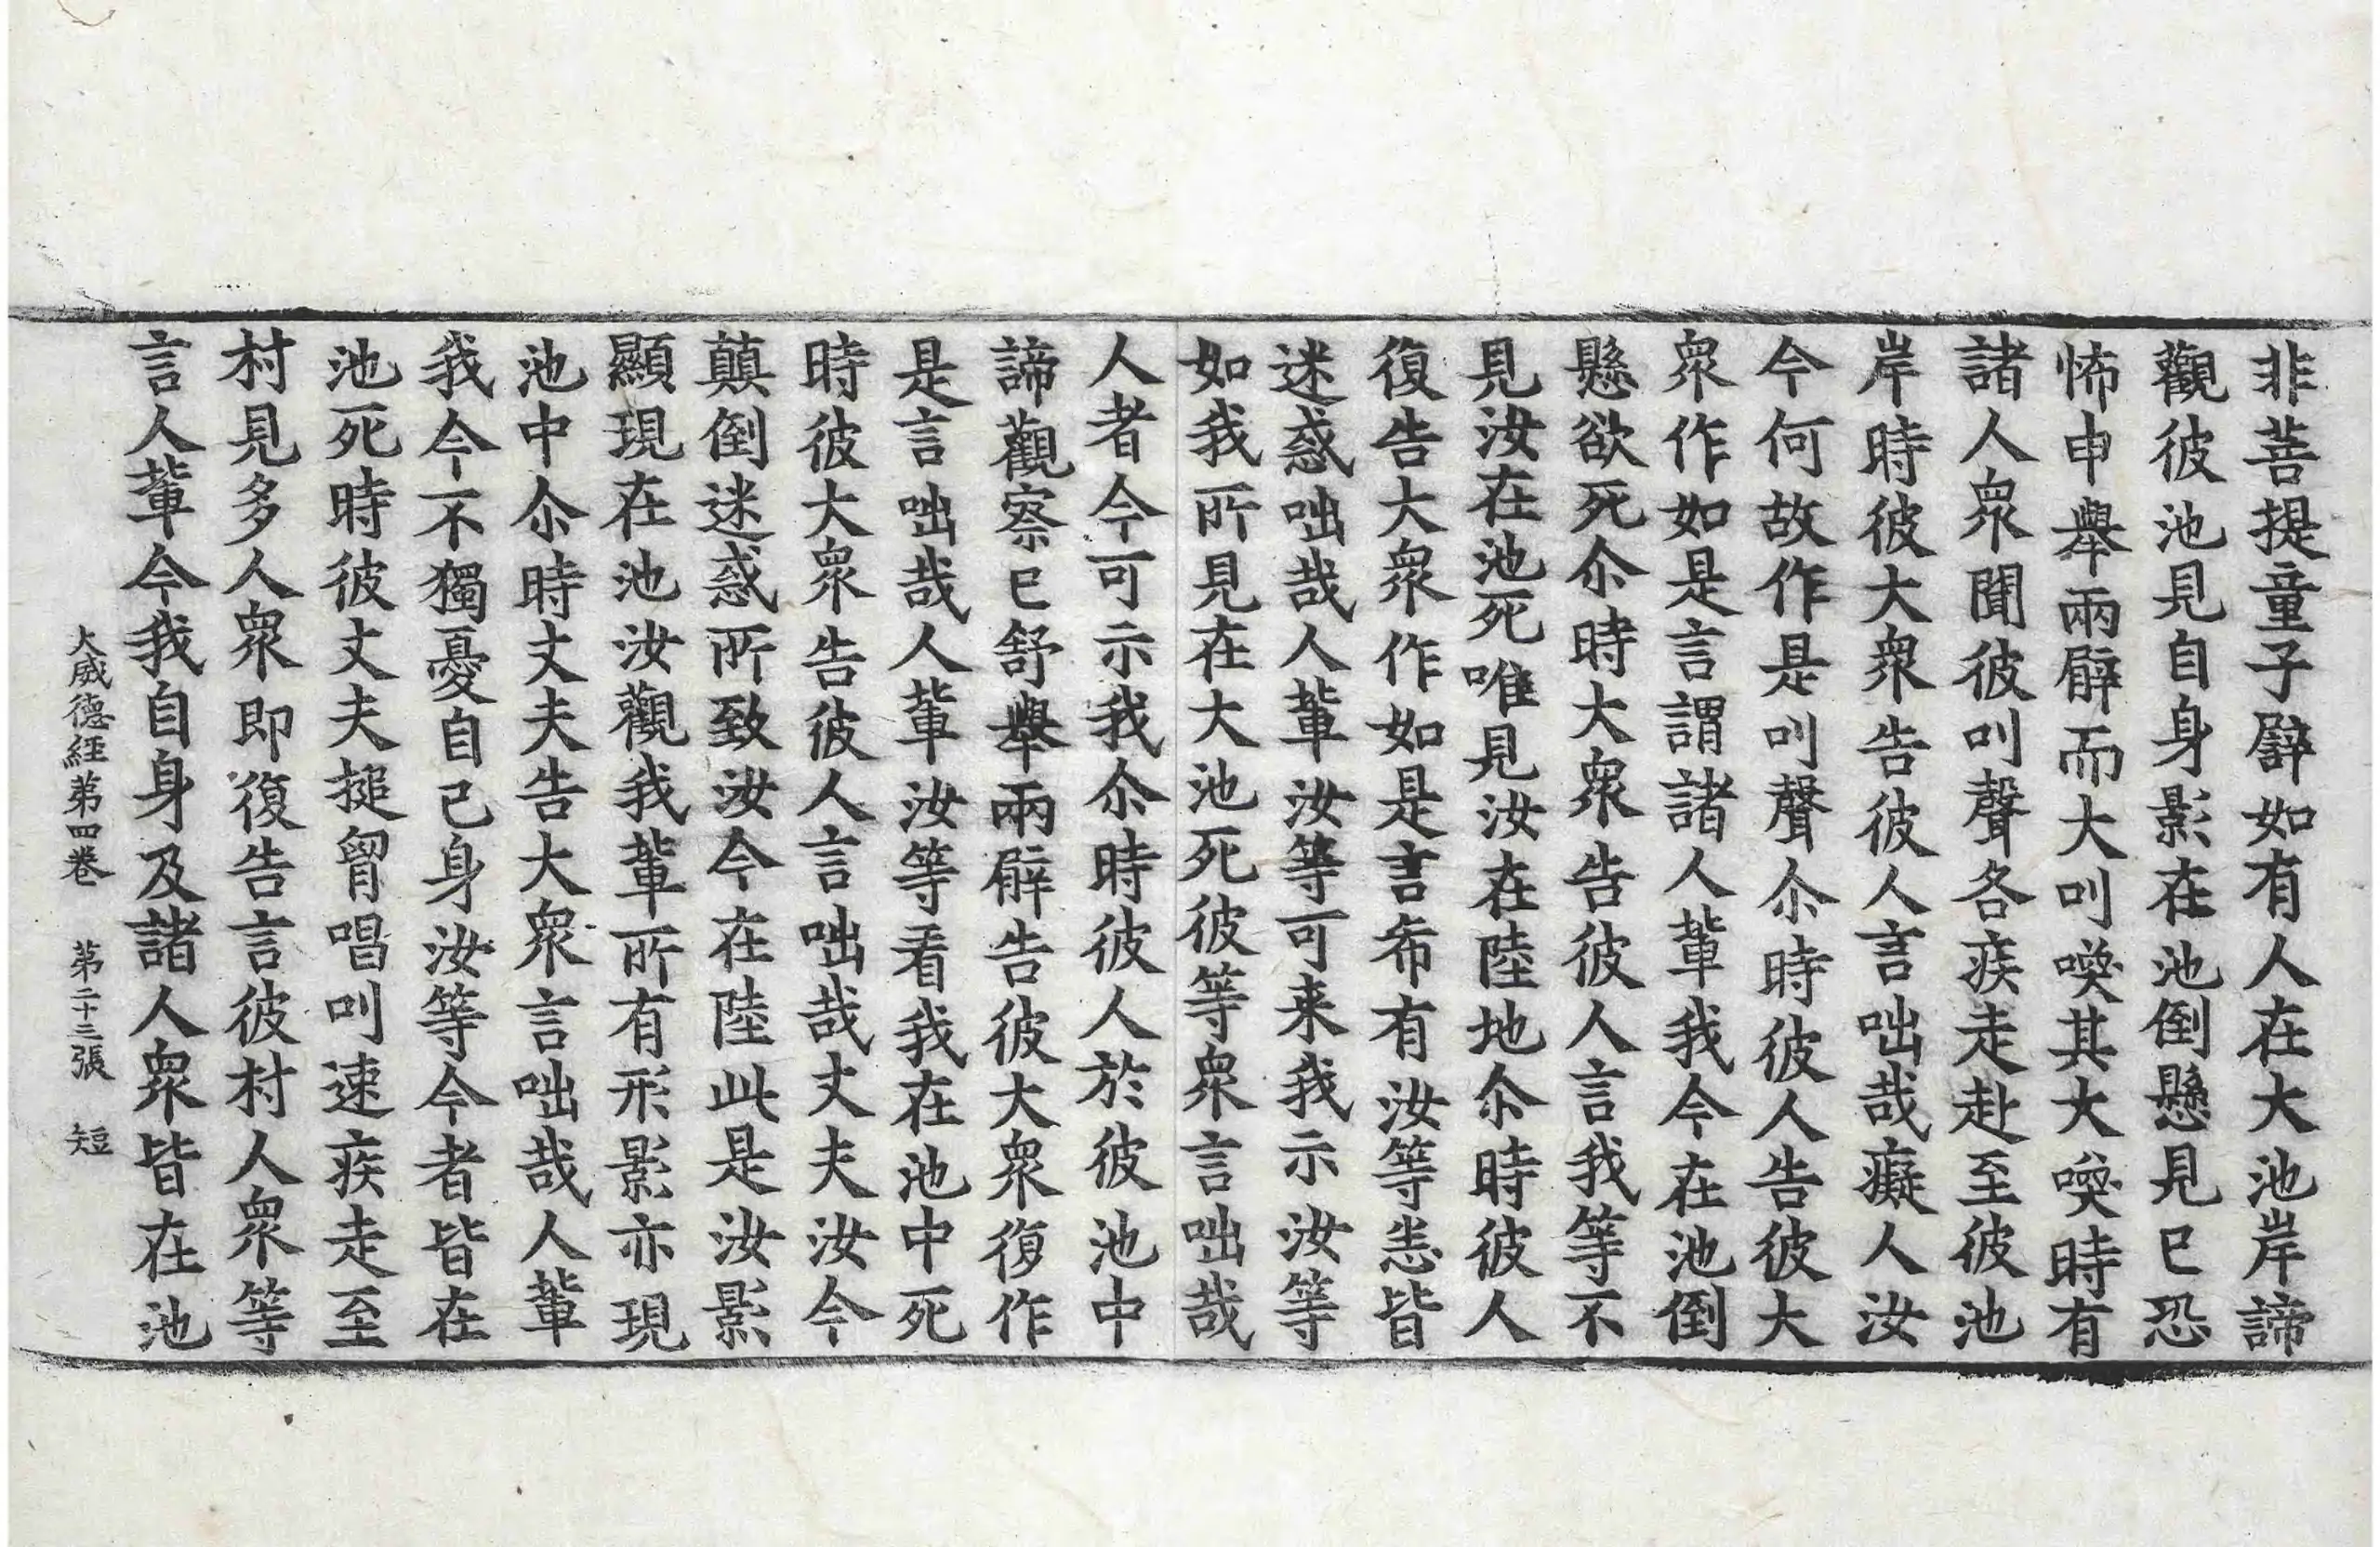 非菩提童子譬如有人在大池岸諦
觀彼池見自身影在池倒懸見已恐
怖申舉兩臂而大叫喚其大喚時有
諸人衆聞彼叫聲各疾走赴至彼池
岸時彼大衆告彼人言咄哉癡人汝
今何故作是叫聲尒時彼人告彼大
衆作如是言謂諸人輩我今在池倒
懸欲死尒時大衆告彼人言我等不
見汝在池死唯見汝在陸地尒時彼人
復告大衆作如是言希有汝等恙皆
迷惑咄哉人輩汝等可来我示汝等
如我所見在大池死彼等衆言咄哉
人者今可示我尒時彼人於彼池中
諦觀察已舒舉兩臂告彼大衆復作
是言咄哉人輩汝等看我在池中死
時彼大衆告彼人言咄哉丈夫汝今
顛倒迷惑所致汝今在陸此是汝影
顯現在池汝觀我輩所有形影亦現
池中尒時丈夫告大衆言咄哉人輩
我今不獨憂自己身汝等今者皆在
池死時彼丈夫搥胷唱叫速疾走至
村見多人衆即復告言彼村人衆等
言人輩今我自身及諸人衆皆在池
大威德經第四卷 第二十三張 短